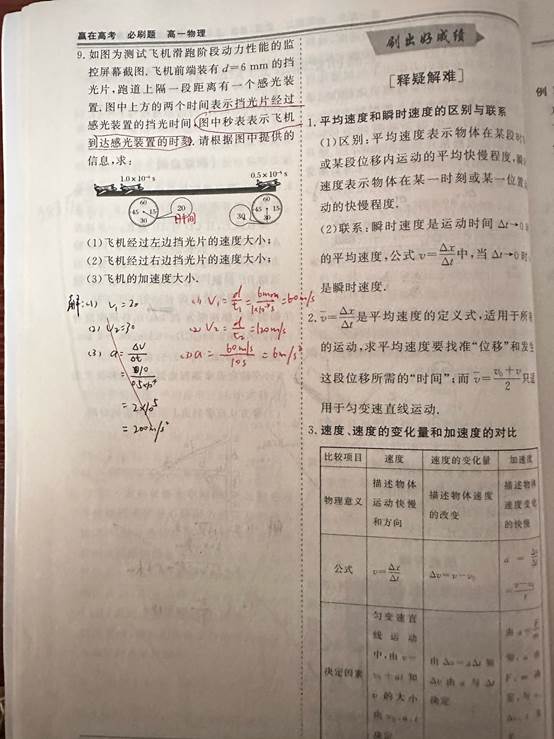 赢在高考 必刷题 高一物理
9. 如图为测试飞机滑跑阶段动力性能的监
控屏幕截图. 飞机前端装有 d=6 mm 的挡
光片, 跑道上隔一段距离有一个感光装
置. 图中上方的两个时间表示挡光片经过
感光装置的挡光时间, 图中秒表表示飞机
到达感光装置的时刻. 请根据图中提供的
信息, 求:
1.0×10⁻⁴ s 0.5×10⁻⁴ s
60 45 15 30 20 30 60 45 15 30
时间
(1) 飞机经过左边挡光片的速度大小;
(2) 飞机经过右边挡光片的速度大小;
(3) 飞机的加速度大小.
解:(1) v₁=20
(2) v₂=30
(3) a=Δv/Δt
=2×10⁵
=200m/s²
(1) v₁=d/t₁=6mm/1×10⁻⁴s=60m/s
(2) v₂=d/t₂=120m/s
(3) a=60m/s/10s=6m/s²
刷出好成绩
[释疑解难]
1. 平均速度和瞬时速度的区别与联系
(1) 区别: 平均速度表示物体在某段时
或某段位移内运动的平均快慢程度, 瞬
速度表示物体在某一时刻或某一位置
动的快慢程度.
(2) 联系: 瞬时速度是运动时间 Δt→0
的平均速度, 公式 v=Δx/Δt 中, 当 Δt→0 时
是瞬时速度.
2. v=Δx/Δt 是平均速度的定义式, 适用于所
的运动, 求平均速度要找准“位移”和发生
这段位移所需的“时间”; 而 v̄=(v₀+v)/2 只适
用于匀变速直线运动.
3. 速度、速度的变化量和加速度的对比
比较项目 速度 速度的变化量 加速度
物理意义 描述物体运动快慢和方向 描述物体速度的改变 描述物体速度变化的快慢
公式 v=Δx/Δt Δv=v-v₀
决定因素 匀变速直线运动中, 由 v=v₀+at 知 v 的大小由 决定
例